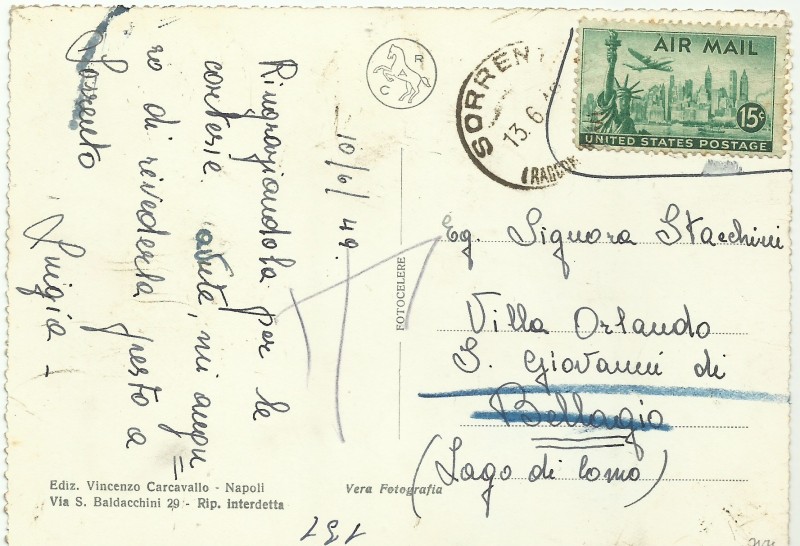 10/6/49.
Ringraziandola per le
cortesie avute, mi augu=
ro di rivederla presto a
Sorrento
Luigia -
C A R
SORRENT
13.6.49
(RACCOM
AIR MAIL
15¢
UNITED STATES POSTAGE
Eg. Signora Stacchini
Villa Orlando
S. Giovanni di
Bellagio
(Lago di Como)
FOTOCELERE
Ediz. Vincenzo Carcavallo - Napoli
Via S. Baldacchini 29 - Rip. interdetta
Vera Fotografia
137